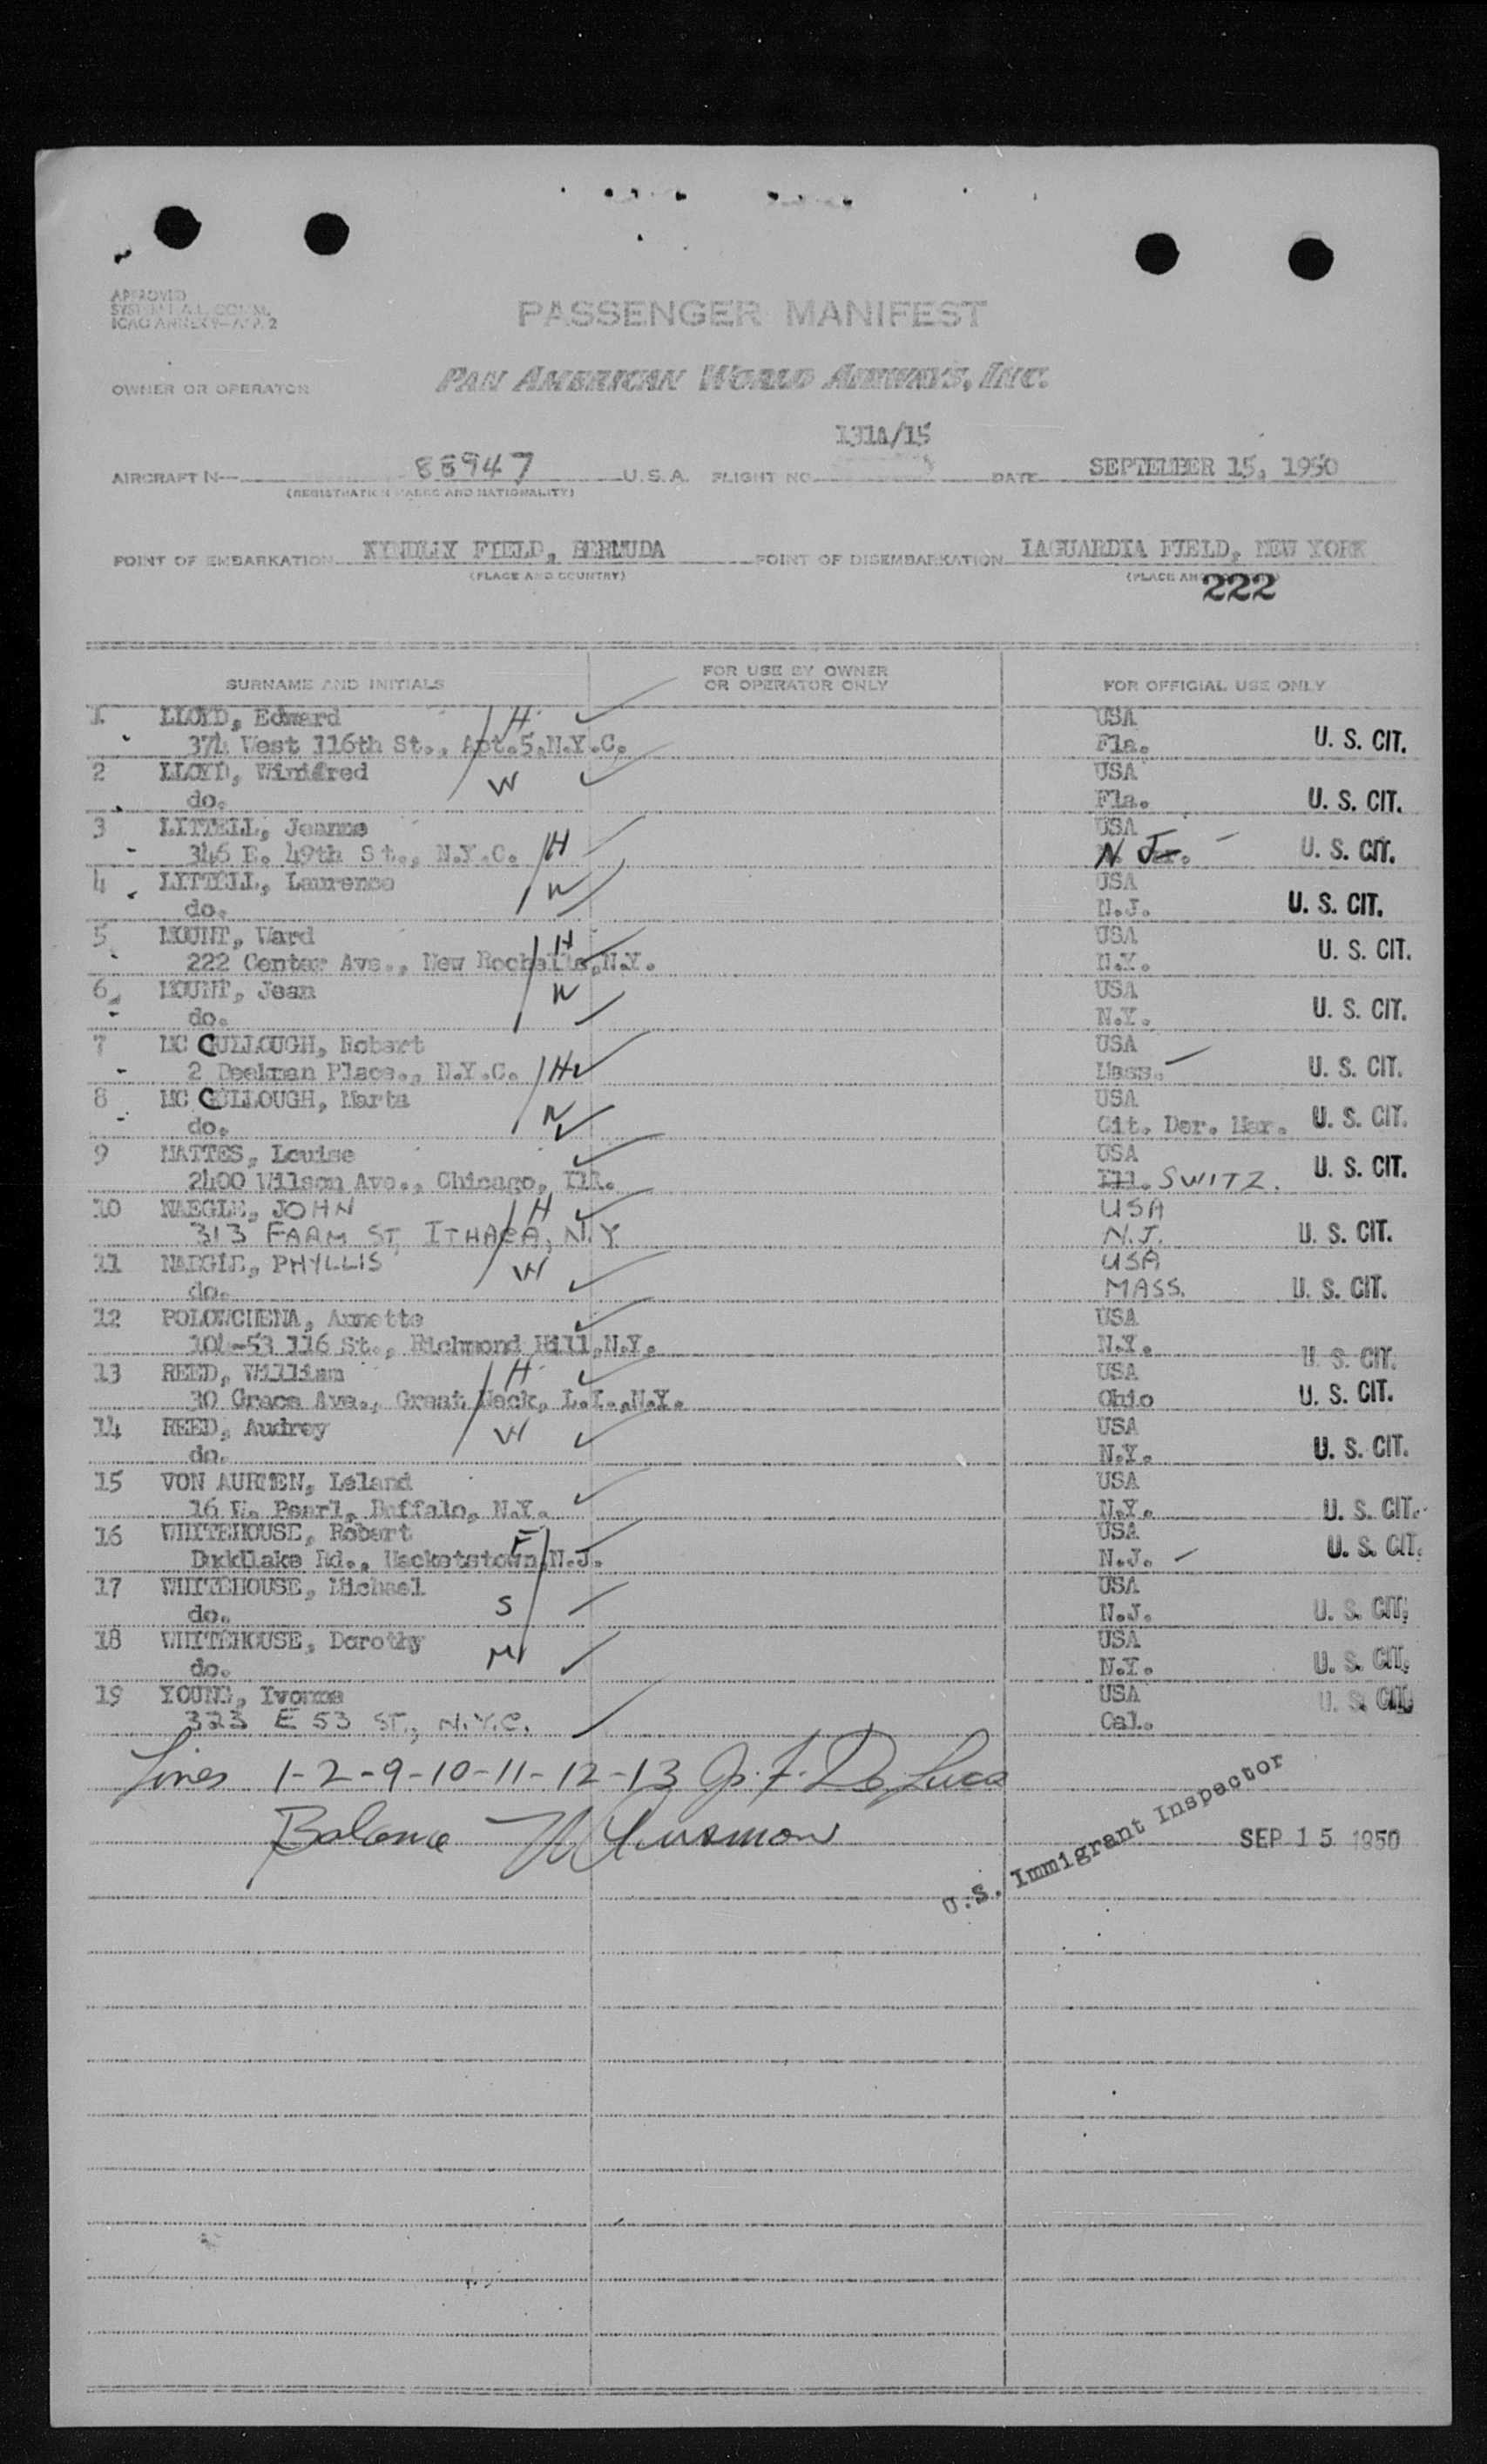 APPROVED
ICAO ANNEX 9—APP. 2
PASSENGER MANIFEST
OWNER OR OPERATOR PAN AMERICAN WORLD AIRWAYS, INC.
131A/15
AIRCRAFT N— 88947 U.S.A. FLIGHT NO. DATE SEPTEMBER 15, 1950
(REGISTRATION MARKS AND NATIONALITY)
POINT OF EMBARKATION KINDLEY FIELD, BERMUDA POINT OF DISEMBARKATION LAGUARDIA FIELD, NEW YORK
(PLACE AND COUNTRY) (PLACE AND
222
SURNAME AND INITIALS FOR USE BY OWNER OR OPERATOR ONLY FOR OFFICIAL USE ONLY
1. LLOYD, Edward H USA
374 West 116th St., Apt.5,N.Y.C. Fla. U. S. CIT.
2 LLOYD, Winifred W USA
do. Fla. U. S. CIT.
3 LITTELL, Jeanne USA
346 E. 49th St., N.Y.C. H N J. U. S. CIT.
4 LITTELL, Laurence W USA
do. N.J. U. S. CIT.
5 MOUNT, Ward H USA
222 Center Ave., New Rochelle,N.Y. N.Y. U. S. CIT.
6 MOUNT, Jean W USA
do. N.Y. U. S. CIT.
7 MC CULLOUGH, Robert USA
2 Beekman Place., N.Y.C. H Mass. U. S. CIT.
8 MC CULLOUGH, Marta W USA
do. Cit. Der. Mar. U. S. CIT.
9 MATTES, Louise USA
2400 Wilson Ave., Chicago, Ill. Ill. SWITZ. U. S. CIT.
10 NAEGLE, JOHN H USA
313 FARM ST, ITHACA, N.Y N.J. U. S. CIT.
11 NAEGLE, PHYLLIS W USA
do. MASS. U. S. CIT.
12 POLOWCHENA, Annette USA
104-53 116 St., Richmond Hill,N.Y. N.Y. U. S. CIT.
13 REED, William H USA
30 Grace Ave., Great Neck, L.I.,N.Y. Ohio U. S. CIT.
14 REED, Audrey W USA
do. N.Y. U. S. CIT.
15 VON AURMEN, Leland USA
16 W. Pearl, Buffalo, N.Y. N.Y. U. S. CIT.
16 WHITEHOUSE, Robert F USA
Buddlake Rd., Hacketstown,N.J. N.J. U. S. CIT.
17 WHITEHOUSE, Michael USA
do. S N.J. U. S. CIT.
18 WHITEHOUSE, Dorothy M USA
do. N.Y. U. S. CIT.
19 YOUNG, Ivonne USA U. S. CIT.
323 E 53 ST., N.Y.C. Cal.
Lines 1-2-9-10-11-12-13 De Luca
Balance
U.S. Immigrant Inspector
SEP 15 1950